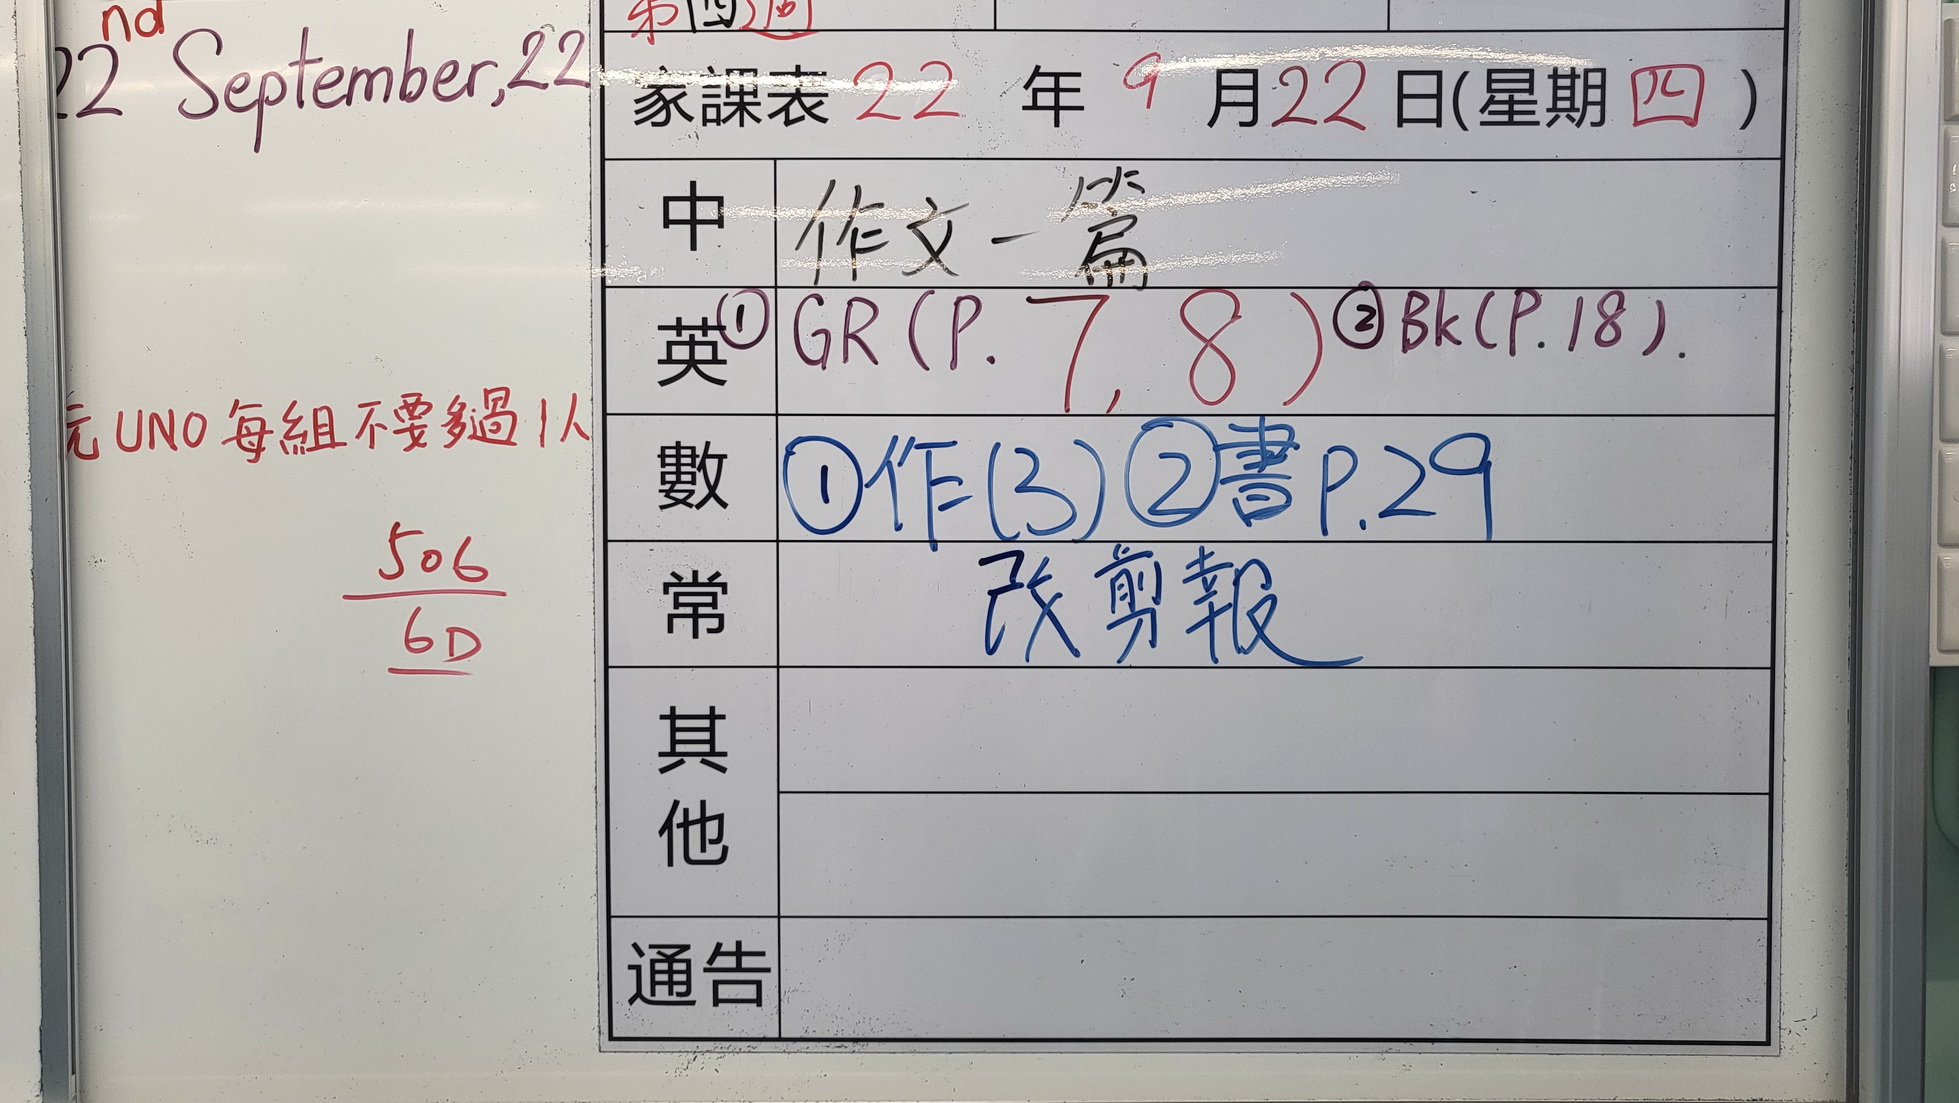 nd
22 September, 22
UNO 每組不要多過1人
506
6D
第四週
家課表 22 年 9 月 22 日(星期 四 )
中 作文一篇
英 ① GR (P. 7, 8) ② Bk (P. 18).
數 ①作(3) ②書 P.29
常 改剪報
其他
通告